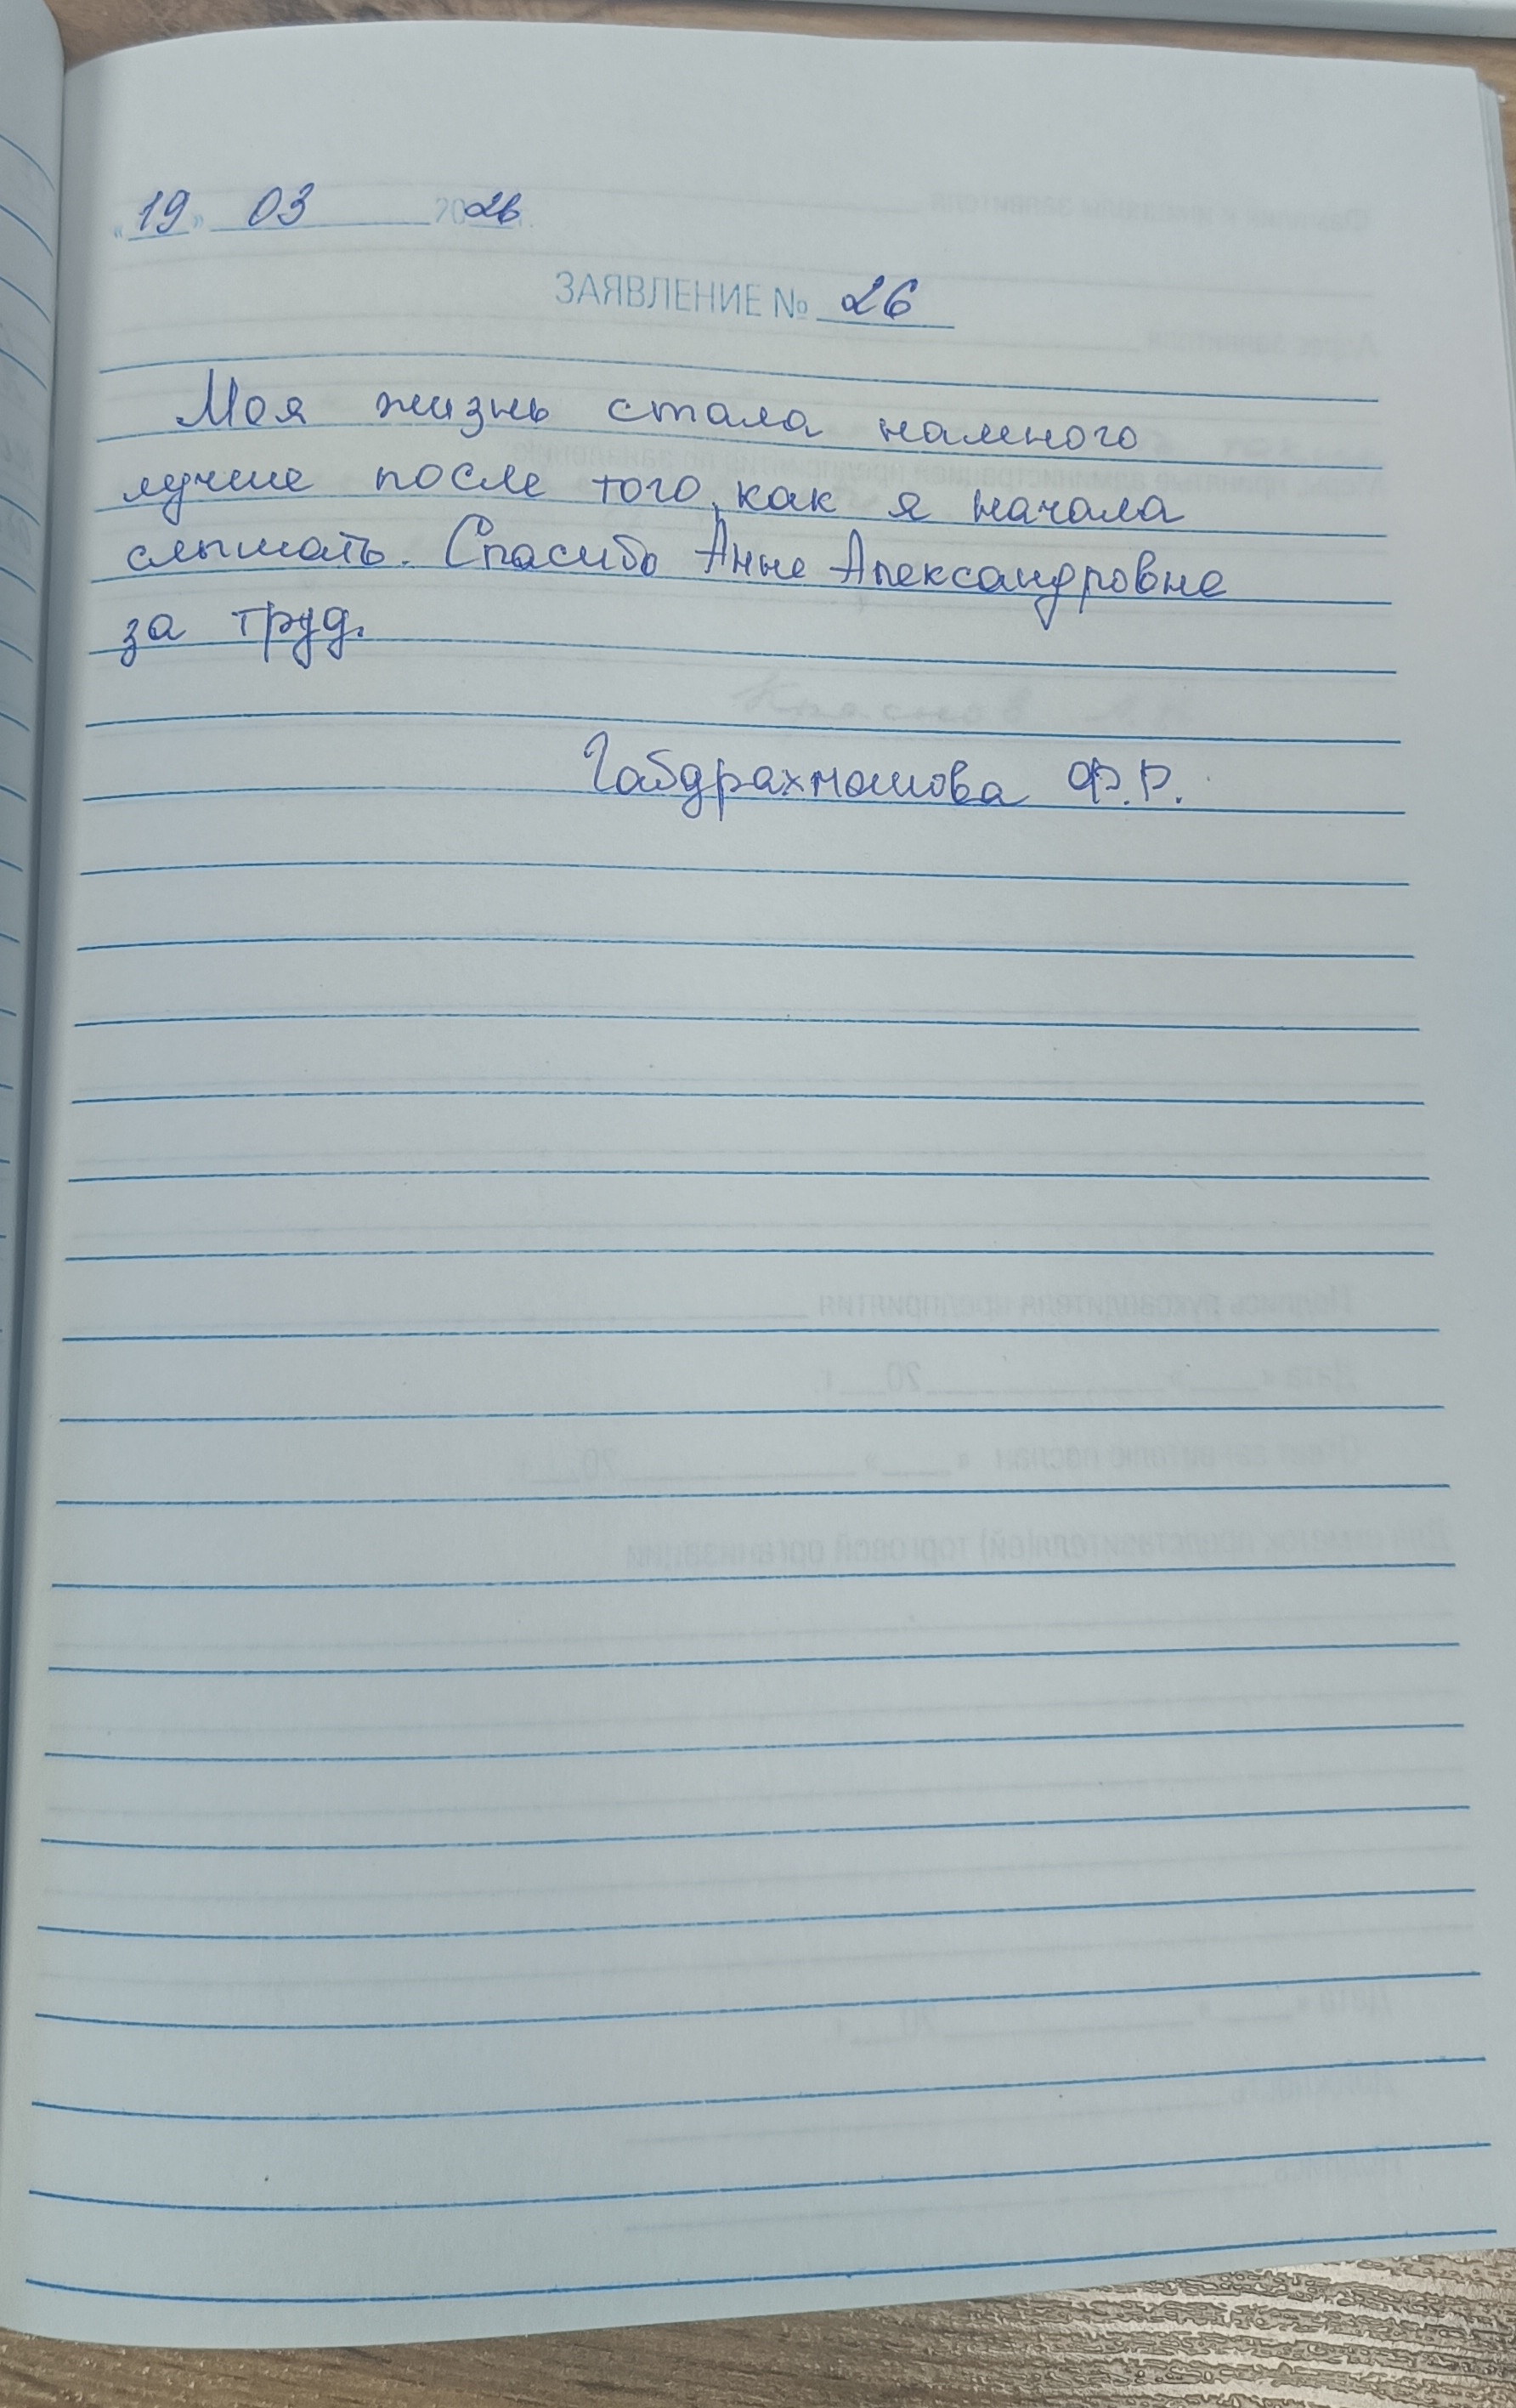 «19» 03 2026г.
ЗАЯВЛЕНИЕ № 26
Моя жизнь стала намного
лучше после того, как я начала
слышать. Спасибо Анне Александровне
за труд.
Габдрахманова Ф.Р.